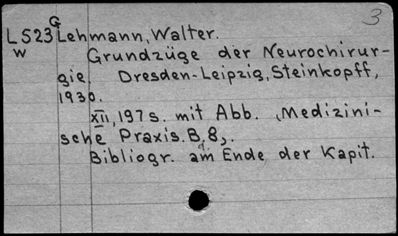 3
G
L523 Lehmann, Walter.
w Grundzüge der Neurochirur-
gie. Dresden-Leipzig, Steinkopff,
1930.
XII, 197 s. mit Abb. (Medizini-
sche Praxis. Bd. 8).
Bibliogr. am Ende der Kapit.